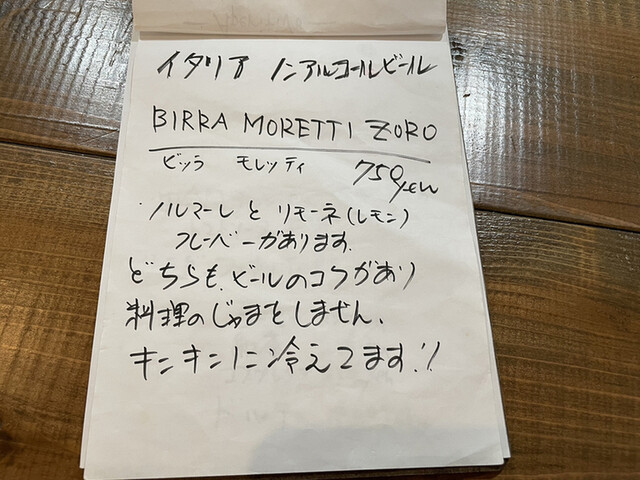 イタリア ノンアルコールビール
BIRRA MORETTI ZORO
ビッラ モレッティ 750yen
・ノルマーレ と リモーネ(レモン)
フレーバーがあります.
どちらも、ビールのコクがあり
料理のじゃまをしません、
キンキンに冷えてます!!